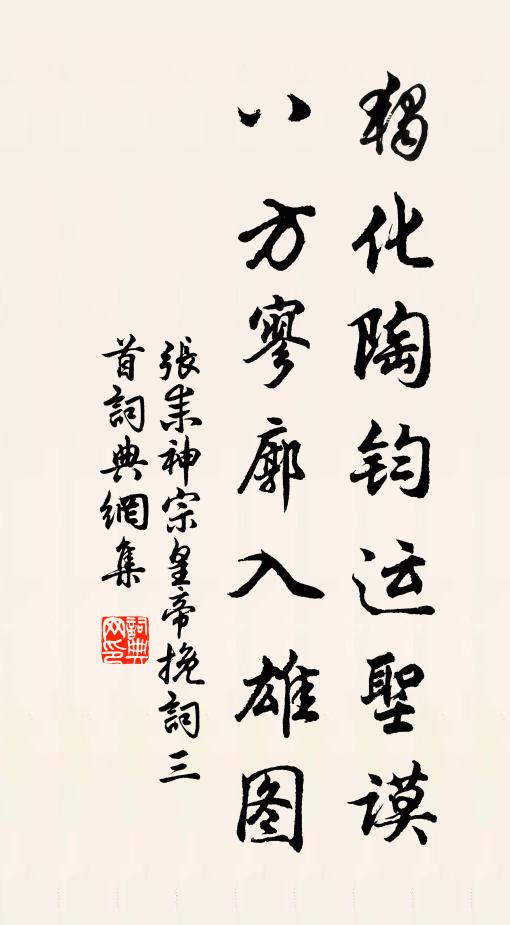 獨化陶钧运聖謨
八方寥廓入雄图
張耒神宗皇帝挽詞三
首詞典網集
詞典
网印